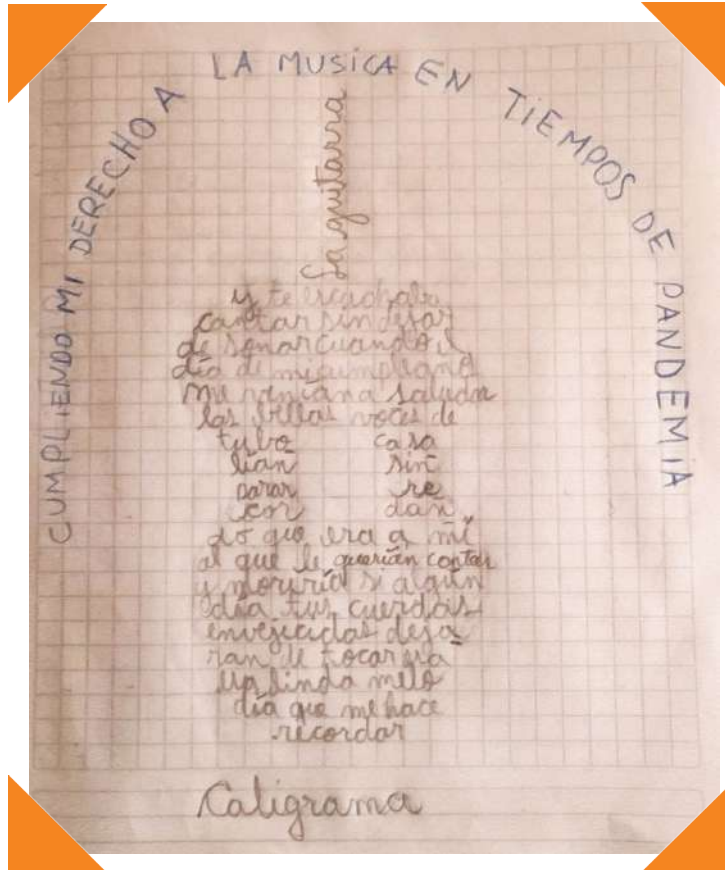 CUMPLIENDO MI DERECHO A LA MUSICA EN TIEMPOS DE PANDEMIA
La guitarra
y te escuchaba
cantar sin dejar
de sonar cuando el
día de mi cumpleaño
me venían a saludar
las bellas voces de
tubo casa
lian sin
parar re
cor dan
do que era a mí
al que le querían cantar
y moriría si algún
día tus cuerdas
envejecidas deja
ran de tocar
linda melo
día que me hace
recordar
Caligrama